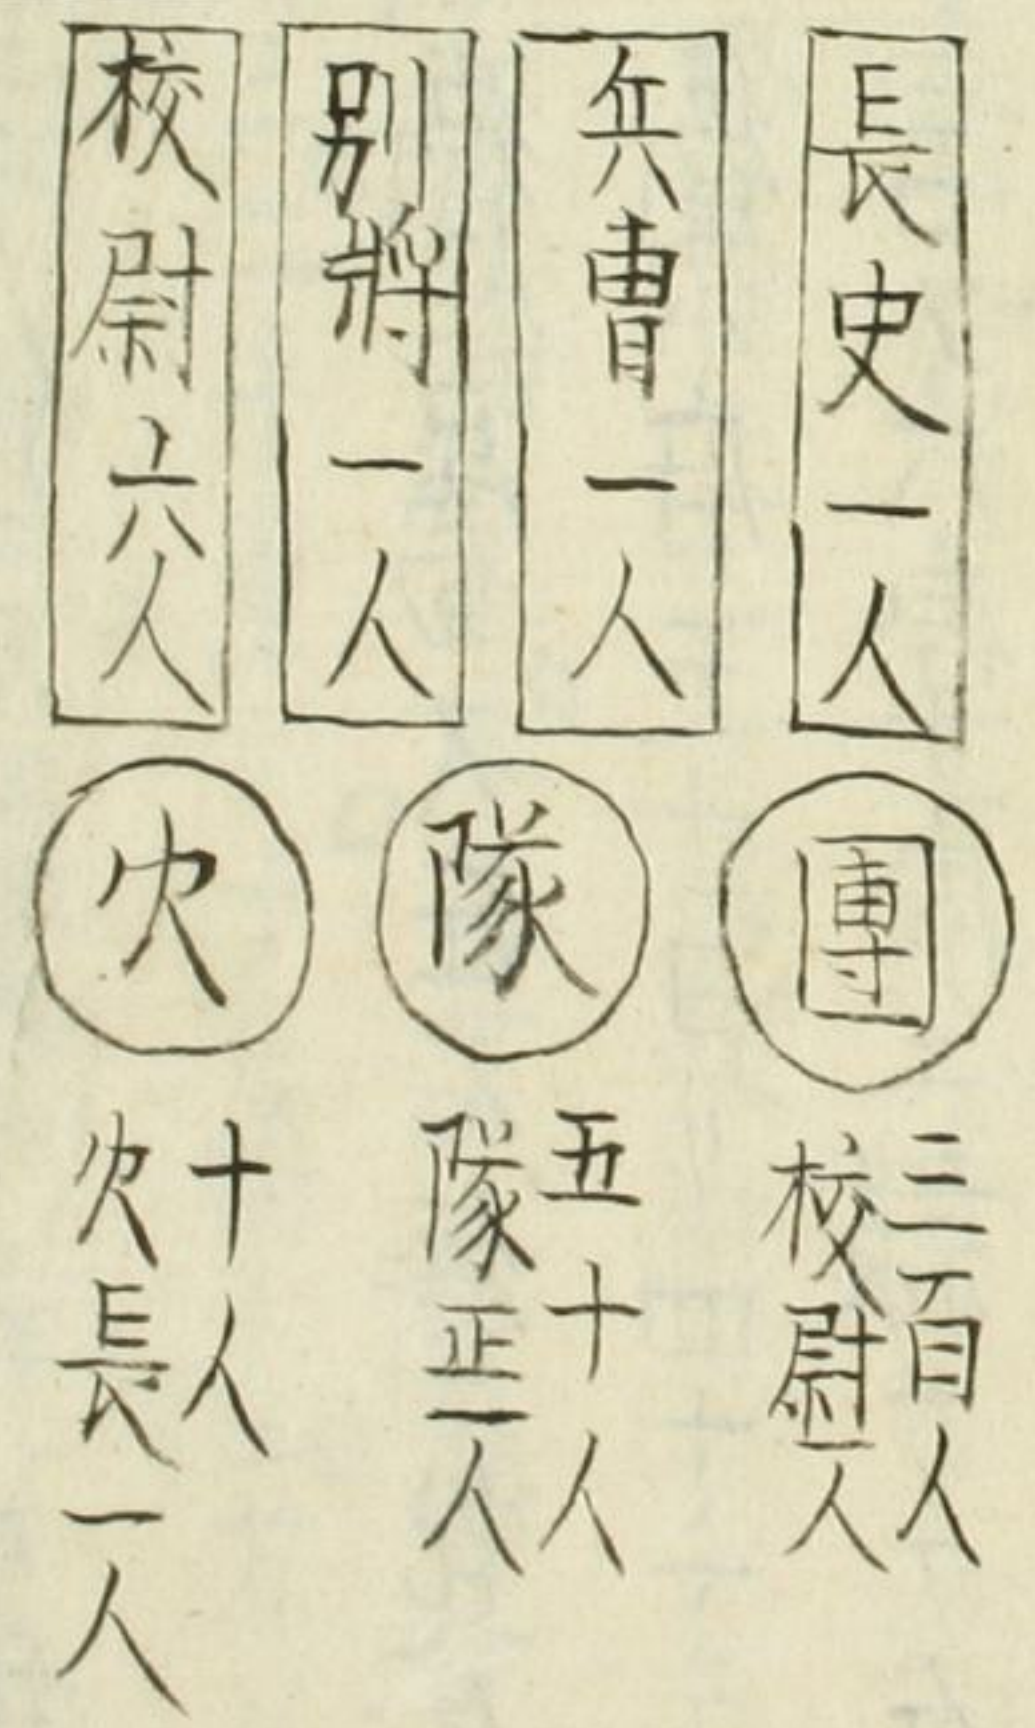 長史一人
兵曹一人
别將一人
校尉六人
團
隊
火
三百人
校尉一人
五十人
隊正一人
十人
火長一人